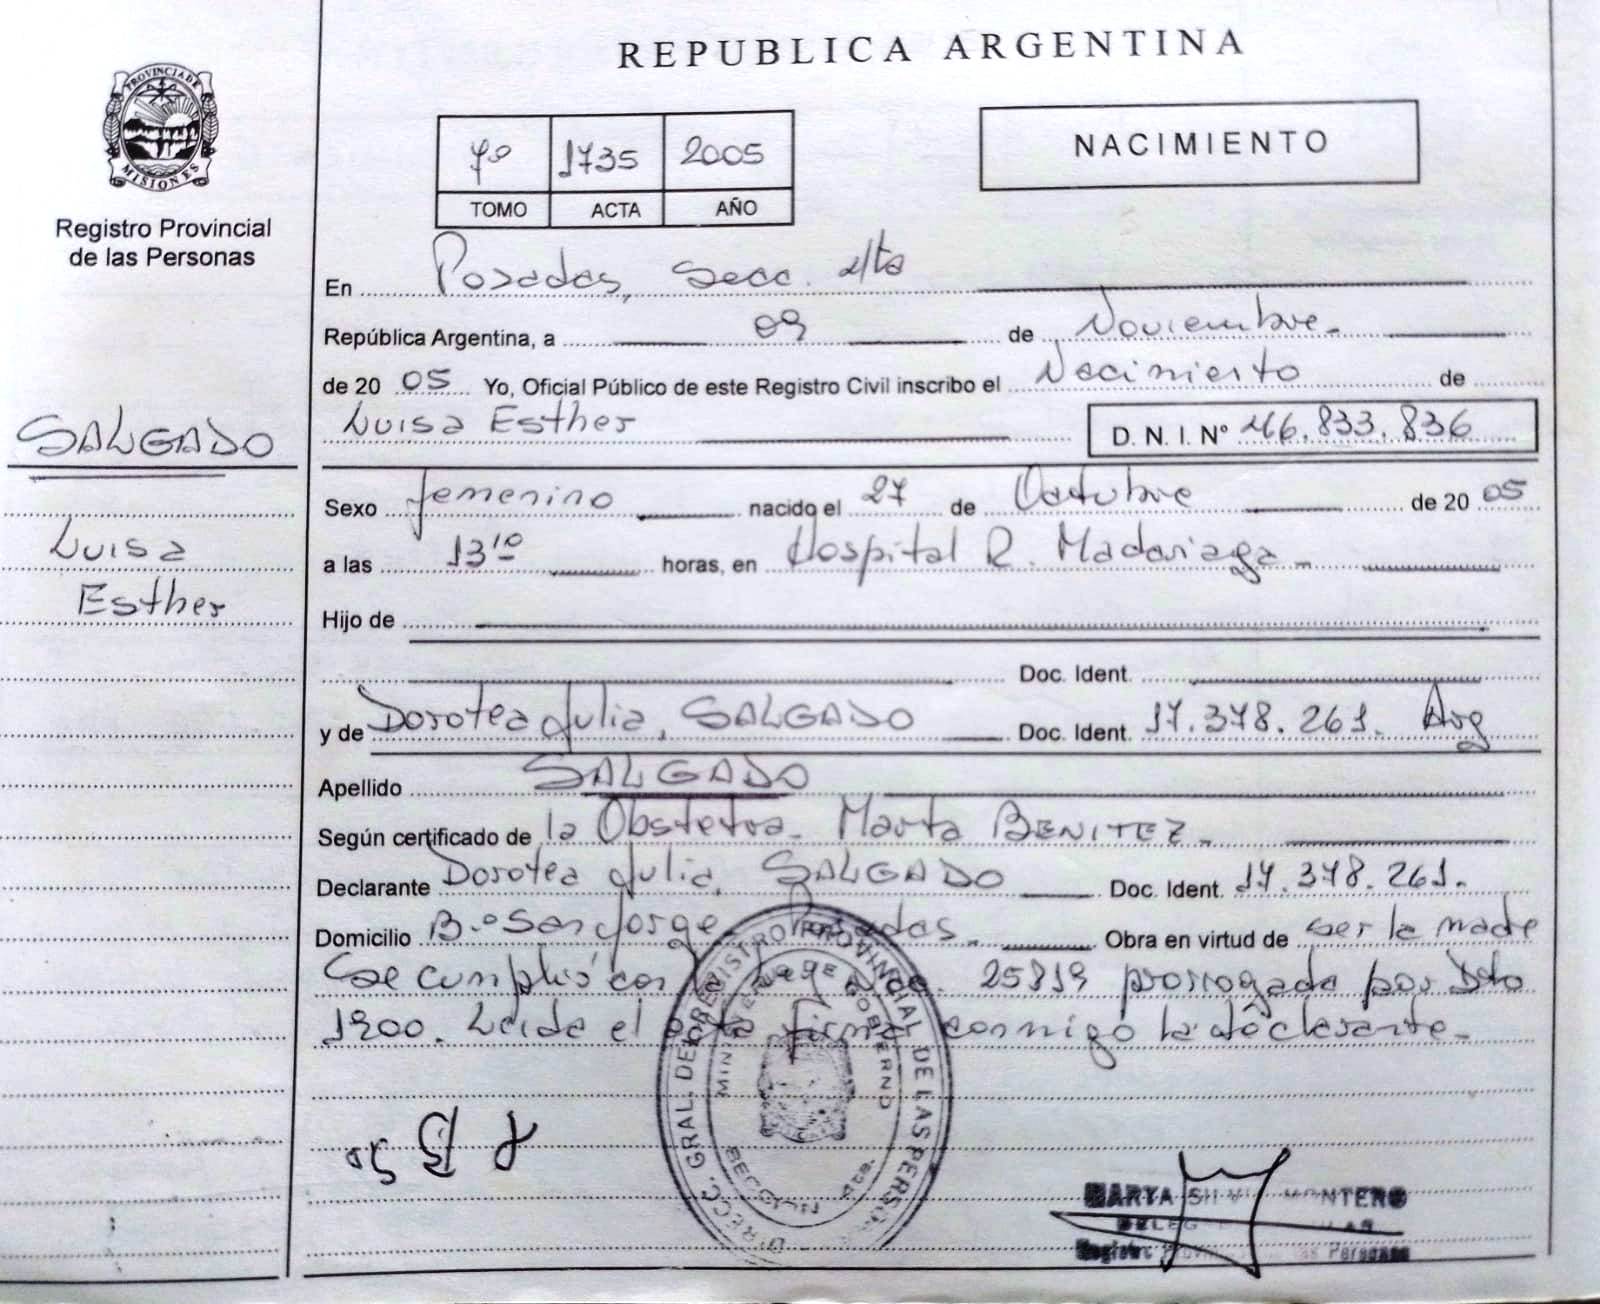 REPUBLICA ARGENTINA
PROVINCIA DE MISIONES
Registro Provincial
de las Personas
7º 1735 2005
TOMO ACTA AÑO
NACIMIENTO
En Posadas, Secc. 4ta
República Argentina, a 09 de Noviembre.
de 20 05 Yo, Oficial Público de este Registro Civil inscribo el Nacimiento de
Luisa Esther D. N. I. Nº 46.833.836
SALGADO
Luisa
Esther
Sexo femenino nacido el 27 de Octubre de 20 05
a las 13 10 horas, en Hospital R. Madariaga.
Hijo de
Doc. Ident.
y de Dorotea Julia, SALGADO Doc. Ident. 17.378.261. Arg
Apellido SALGADO
Según certificado de la Obstetra. Marta BENITEZ.
Declarante Dorotea Julia, SALGADO Doc. Ident. 17.378.261.
Domicilio B.º San Jorge. Posadas. Obra en virtud de ser la madre
Se cumplió con 25819 prorrogada por Dto
1900. Leida el acta firma conmigo la declarante.
DIRECC. GRAL. DEL REGISTRO PROVINCIAL DE LAS PERSONAS
MINISTERIO DE GOBIERNO
SECCION 4ta.
MARTA SILVIA MONTERO
Registro Provincial de las Personas